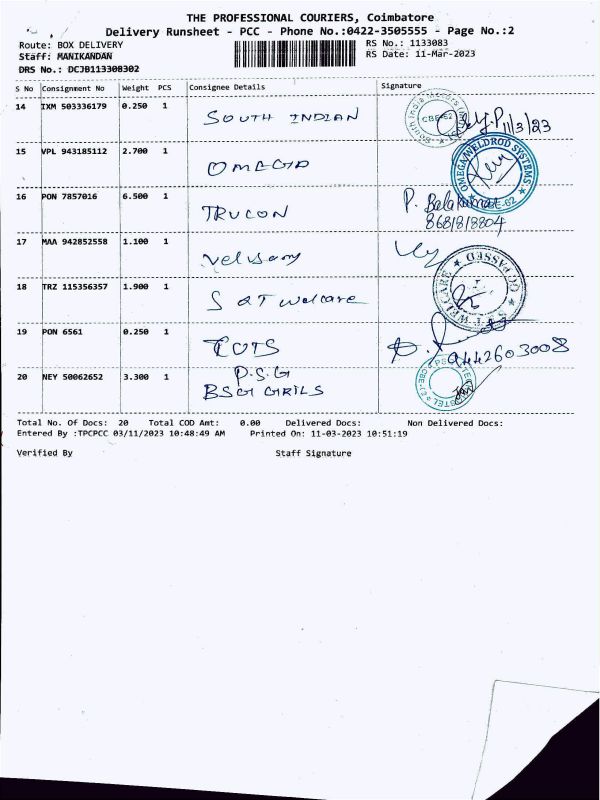 THE PROFESSIONAL COURIERS, Coimbatore
Delivery Runsheet - PCC - Phone No.:0422-3505555 - Page No.:2
Route: BOX DELIVERY
RS No.: 1133083
Staff: MANIKANDAN
RS Date: 11-Mar-2023
DRS No.: DCJB113308302
S No Consignment No Weight PCS Consignee Details Signature
14 IXM 503336179 0.250 1 SOUTH INDIAN 11/3/23
CBE-62
15 VPL 943185112 2.700 1 OMEGA
OMEGA WELDROD SYSTEMS
16 PON 7857016 6.500 1 TRUCON P. Balakumar
868/8/8804
17 MAA 942852558 1.100 1 Velusamy
QC PASSED
18 TRZ 115356357 1.900 1 S & T Welcare
S & T WELCARE
19 PON 6561 0.250 1 COTS
9442603008
20 NEY 50062652 3.300 1 P.S.G
BSGI GRILS
Total No. Of Docs: 20 Total COD Amt: 0.00 Delivered Docs: Non Delivered Docs:
Entered By :TPCPCC 03/11/2023 10:48:49 AM Printed On: 11-03-2023 10:51:19
Verified By Staff Signature